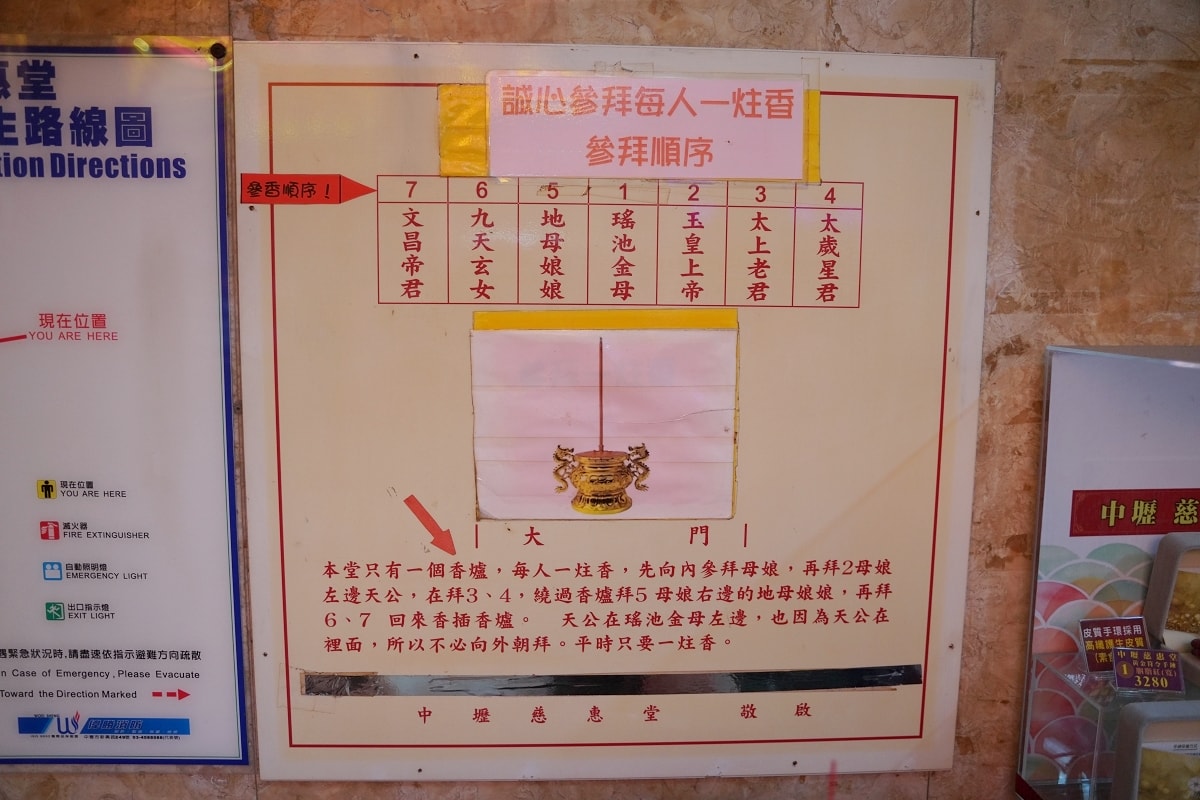 惠堂
生路線圖
tion Directions
現在位置
YOU ARE HERE
現在位置
YOU ARE HERE
滅火器
FIRE EXTINGUISHER
自動照明燈
EMERGENCY LIGHT
出口指示燈
EXIT LIGHT
遇緊急狀況時,請盡速依指示避難方向疏散
n Case of Emergency, Please Evacuate
Toward the Direction Marked
誠心參拜每人一炷香
參拜順序
參香順序！
7 6 5 1 2 3 4
文昌帝君
九天玄女
地母娘娘
瑤池金母
玉皇上帝
太上老君
太歲星君
大門
本堂只有一個香爐，每人一炷香，先向內參拜母娘，再拜2母娘
左邊天公，在拜3、4，繞過香爐拜5母娘右邊的地母娘娘，再拜
6、7 回來香插香爐。 天公在瑤池金母左邊，也因為天公在
裡面，所以不必向外朝拜。平時只要一炷香。
中壢慈惠堂 敬啟
中壢 慈
皮質手環採用
高纖維生皮質
中壢慈惠堂
3280